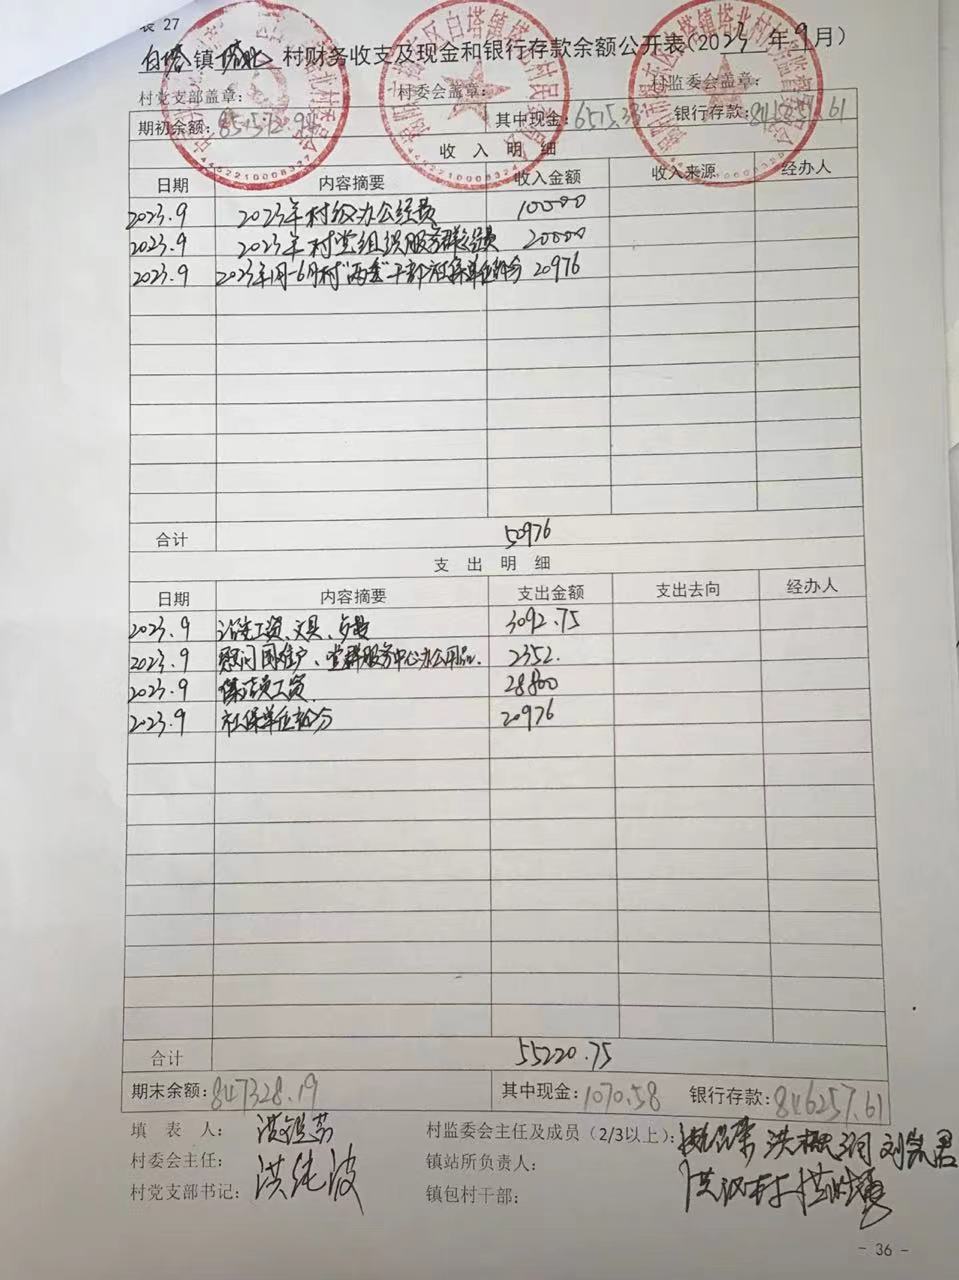 表 27
白塔镇塔北村财务收支及现金和银行存款余额公开表(2023年9月)
村党支部盖章： 村委会盖章： 村监委会盖章：
期初余额：851572.94 其中现金：6515.33 银行存款：845057.61
收 入 明 细
日期 内容摘要 收入金额 收入来源 经办人
2023.9 2023年村级办公经费 10000
2023.9 2023年村党组织服务群众经费 20000
2023.9 2023年1月-6月村"两委"干部社保单位部分 20976
合计 50976
支出明细
日期 内容摘要 支出金额 支出去向 经办人
2023.9 工资、文具、 3092.75
2023.9 慰问困难户、党群服务中心办公用品. 2352.
2023.9 保洁员工资 28800
2023.9 社保单位部分 20976
合计 55220.75
期末余额：847328.19 其中现金：1070.58 银行存款：846257.61
填 表 人： 村监委会主任及成员（2/3以上）：
村委会主任： 镇站所负责人：
村党支部书记：洪纯波 镇包村干部：
- 36 -